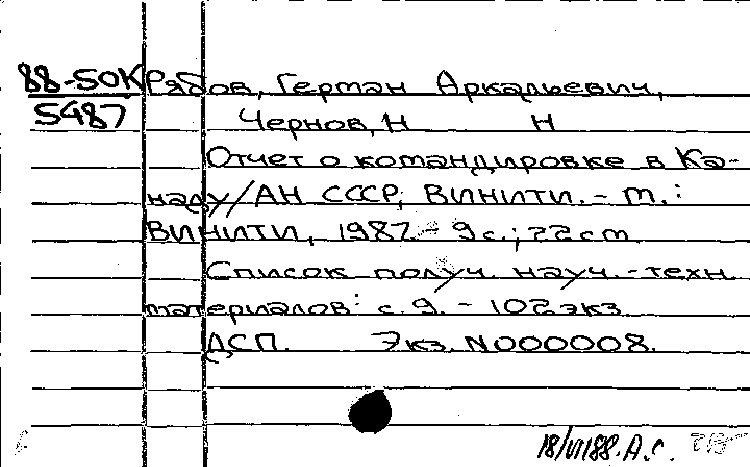 88-50К Рябов, Герман Аркадьевич,
5487 Чернов, Н Н
Отчет о командировке в Ка-
наду/АН СССР, ВИНИТИ. - М.:
ВИНИТИ, 1987. - 9 с.; 22 cm
Список получ. науч.-техн.
материалов: с. 9. - 102 экз.
ДСП. Экз. N000008.
18/VII88. А.С.